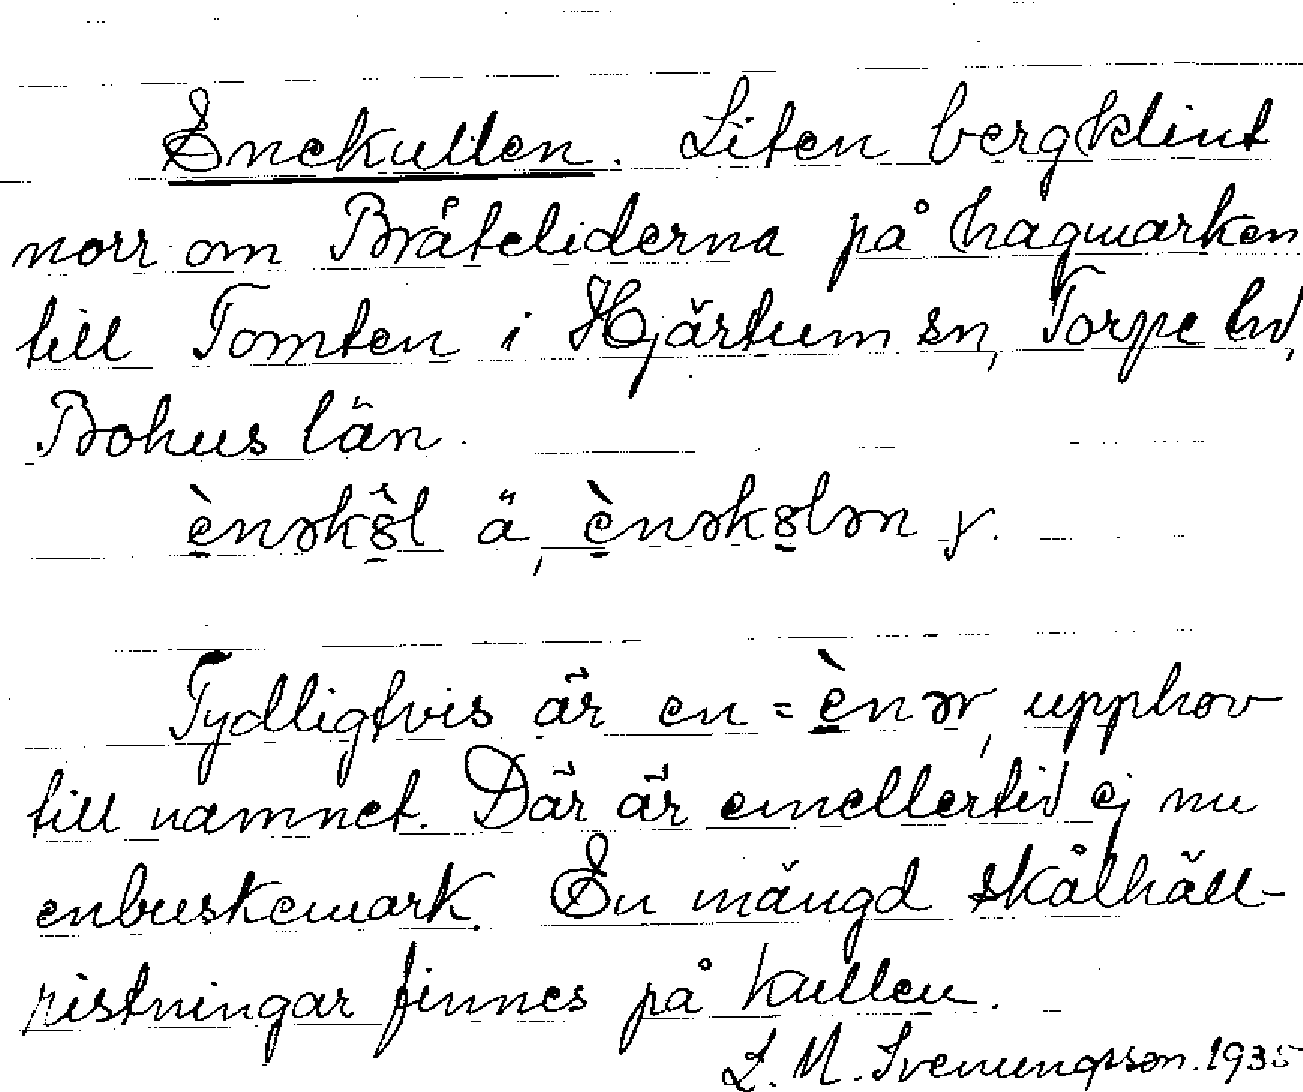 Enekullen. Liten bergklint
norr om Bråteliderna på hagmarken
till Tomten i Hjärtum sn, Torpe hd,
Bohus län.
è̱nəkȣ̱̂l ä, è̱nəkȣ̱lən y.
Tydligtvis är en = è̱nər, upphov
till namnet. Där är emellertid ej nu
enbuskemark. En mängd skålhäll-
ristningar finnes på kullen.
L. M. Svenungsson. 1935